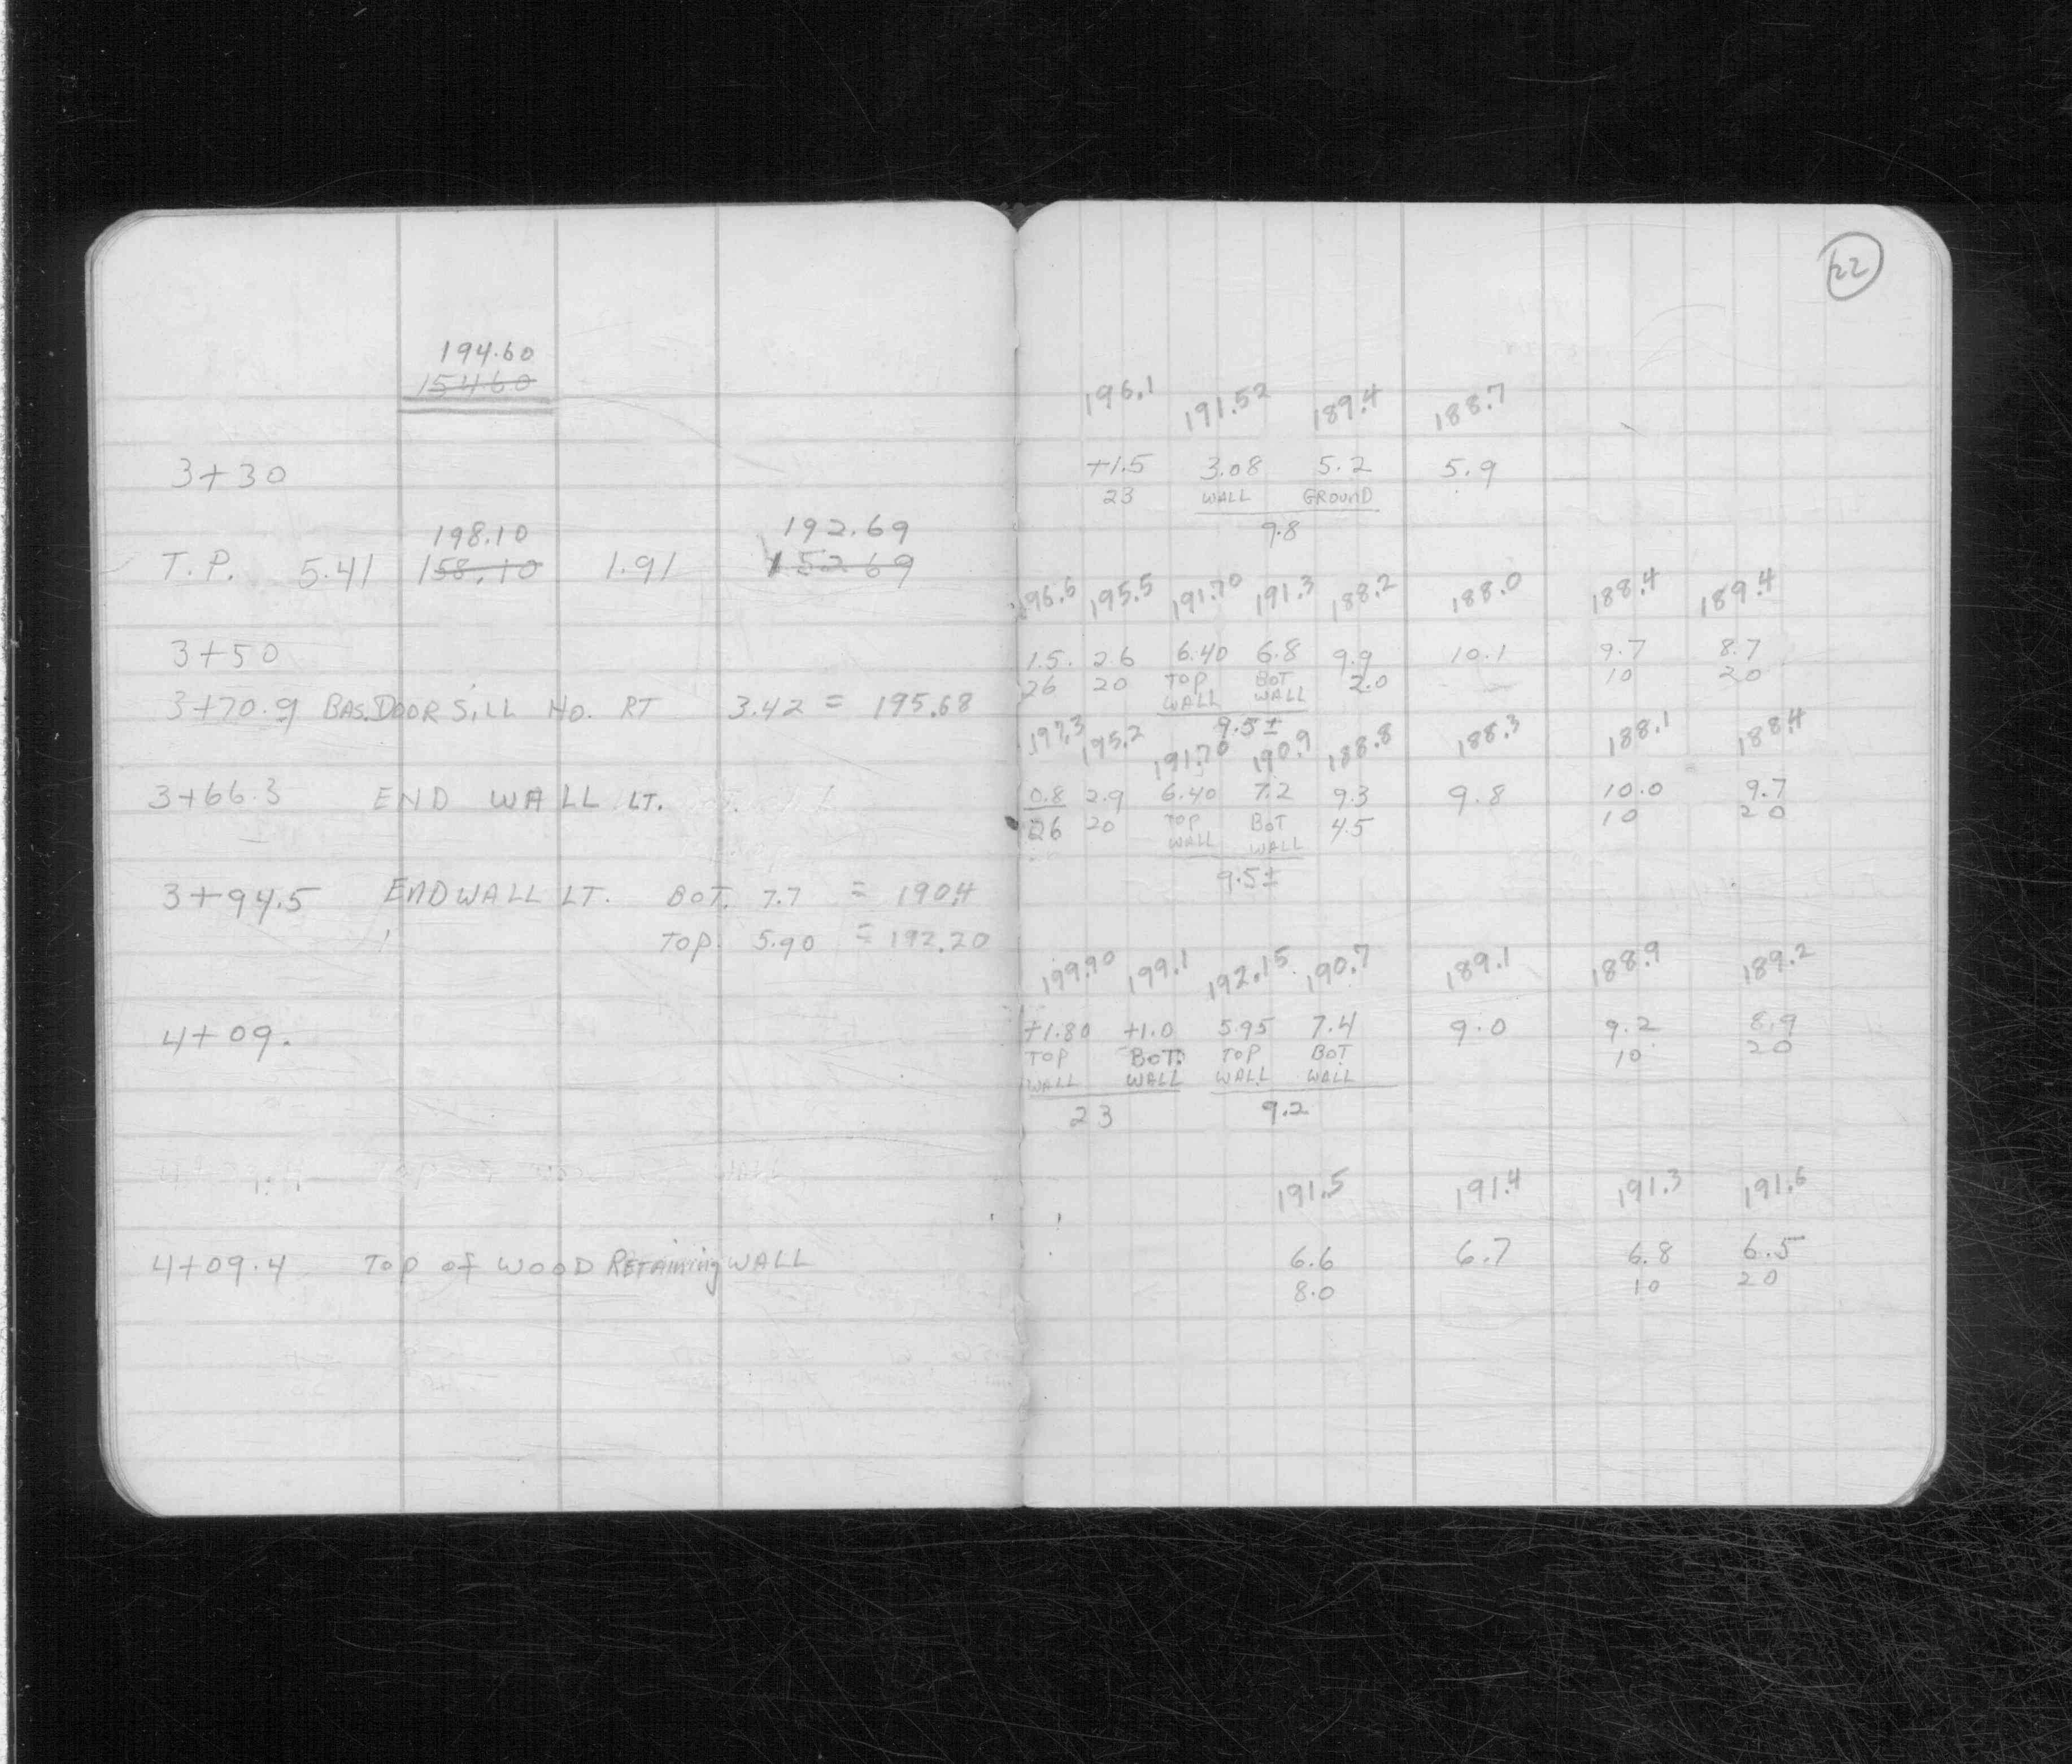 194.60
154.60
3+30
198.10 192.69
T.P. 5.41 158.10 1.91 152.69
3+50
3+70.9 BAS. DOOR SILL HO. RT 3.42 = 195.68
3+66.3 END WALL LT.
3+94.5 END WALL LT. BOT. 7.7 = 190.4
TOP. 5.90 = 192.20
4+09.
4+09.4 TOP of WOOD RETAining WALL
22
196.1 191.52 189.4 188.7
+1.5 3.08 5.2 5.9
23 WALL GROUND
9.8
196.6 195.5 191.70 191.3 188.2 188.0 188.4 189.4
1.5. 2.6 6.40 6.8 9.9 10.1 9.7 8.7
26 20 TOP BOT 2.0 10 20
WALL WALL
9.5±
197.3 195.2 191.70 190.9 188.8 188.3 188.1 188.4
0.8 2.9 6.40 7.2 9.3 9.8 10.0 9.7
26 20 TOP BOT 4.5 10 20
WALL WALL
9.5±
199.90 199.1 192.15 190.7 189.1 188.9 189.2
+1.80 +1.0 5.95 7.4 9.0 9.2 8.9
TOP BOT. TOP BOT 10 20
WALL WALL WALL WALL
23 9.2
191.5 191.4 191.3 191.6
6.6 6.7 6.8 6.5
8.0 10 20